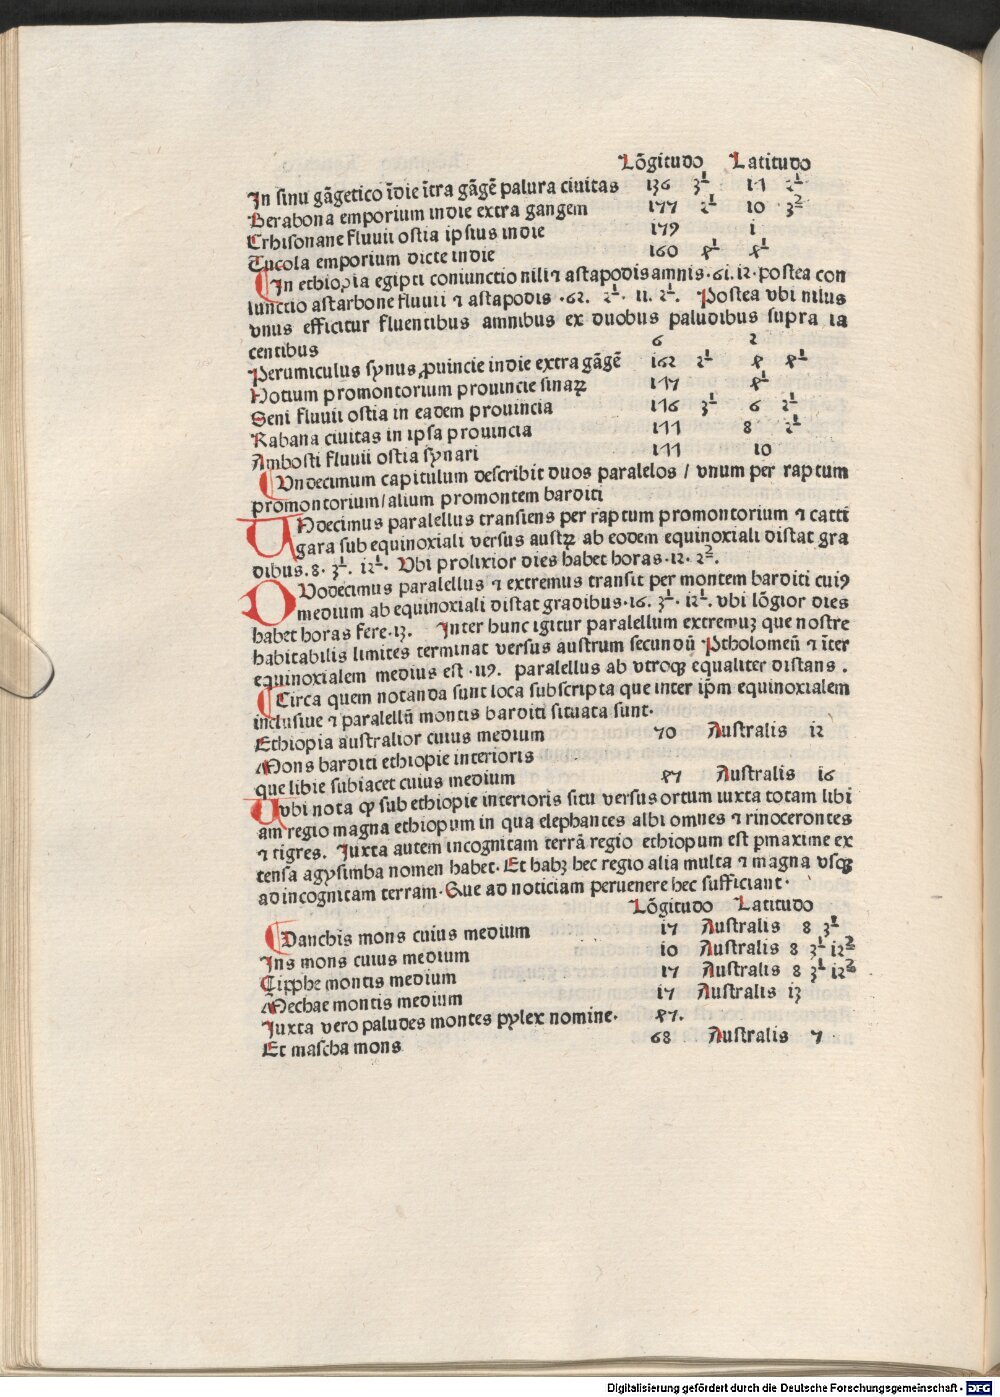 Lōgitudo Latitudo
In sinu gāgetico īdie ītra gāgē palura ciuitas 136 3 1 11 2 1
Berabona emporium indie extra gangem 177 2 1 10 3 2
Crhisonane fluuii ostia ipsius indie 179 1
Tucola emporium dicte indie 160 4 1 4 1
In ethiopia egipti coniunctio nili ⁊ astapodis amnis. 61. 12. postea con
iunctio astarbone fluuii ⁊ astapodis .62. 2 1. 11. 2 1. Postea vbi nilus
vnus efficitur fluentibus amnibus ex duobus paludibus supra ia
centibus 6 2
Perumiculus synus ꝓuincie indie extra gāgē 162 2 1 4 4 1
Notium promontorium prouincie sinaꝝ 117 4 1
Seni fluuii ostia in eadem prouincia 116 3 1 6 2 1
Rabana ciuitas in ipsa prouincia 111 8 2 1
Ambosti fluuii ostia synari 111 10
Vndecimum capitulum describit duos paralelos / vnum per raptum
promontorium/ alium promontem barditi
UNdecimus paralellus transiens per raptum promontorium ⁊ catti
gara sub equinoxiali versus austꝝ ab eodem equinoxiali distat gra
dibus. 8. 3 1. 12 1. Vbi prolixior dies habet horas. 12. 2 2.
DVodecimus paralellus ⁊ extremus transit per montem barditi cuiꝰ
medium ab equinoxiali distat gradibus. 16. 3 1. 12 1. vbi lōgior dies
habet horas fere. 13. Inter hunc igitur paralellum extremuꝫ que nostre
habitabilis limites terminat versus austrum secundū Ptholomeū ⁊ īter
equinoxialem medius est .119. paralellus ab vtroqꝫ equaliter distans .
Circa quem notanda sunt loca subscripta que inter ip̄m equinoxialem
inclusiue ⁊ paralellū montis barditi situata sunt.
Ethiopia australior cuius medium 70 Australis 12
Mons barditi ethiopie interioris
que libie subiacet cuius medium 41 Australis 16
Uvbi nota ꝙ sub ethiopie interioris situ versus ortum iuxta totam libi
am regio magna ethiopum in qua elephantes albi omnes ⁊ rinocerontes
⁊ tigres. Iuxta autem incognitam terrā regio ethiopum est ꝑmaxime ex
tensa agysimba nomen habet. Et habꝫ hec regio alia multa ⁊ magna vsqꝫ
ad incognitam terram. Sue ad noticiam peruenere hec sufficiant.
Lōgitudo Latitudo
Danchis mons cuius medium 17 Australis 8 3 1
Ins mons cuius medium 10 Australis 8 3 1 12 2
Tipphe montis medium 17 Australis 8 3 1 12 2
Mechae montis medium 17 Australis 13
Iuxta vero paludes montes pylex nomine. 41.
Et mascha mons 68 Australis 7
Digitalisierung gefördert durch die Deutsche Forschungsgemeinschaft - DFG